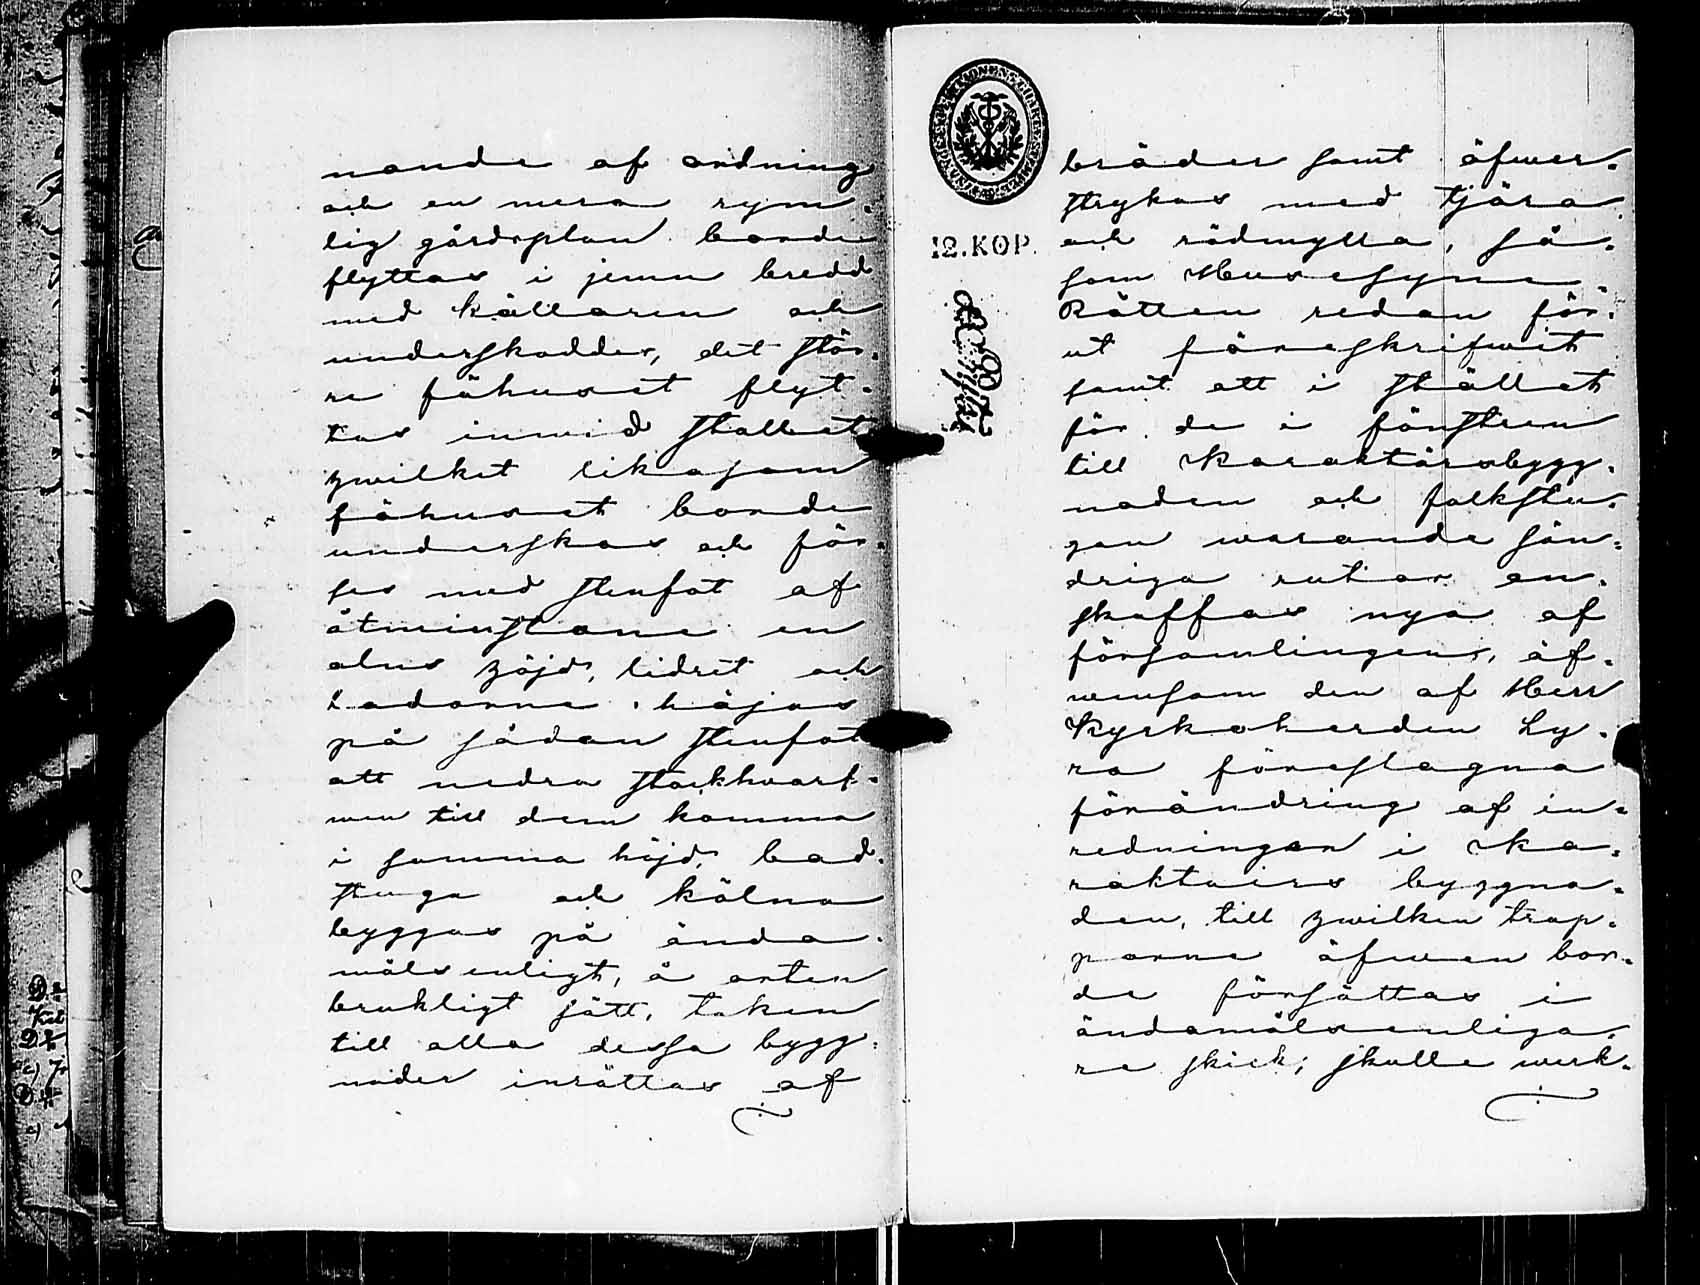 nande af ordning
och en mera rym-
lig gårdsplan borde
flyttas i jemn bredd
med källaren och
underskoddes, det stör-
re fähuset flyt-
tas inwid stallet
hwilket likasom
fähuset borde
underskos och för-
ses med stenfot af
åtminstone en
alns höjd, lidret och
Ladorne höjas
på sådan stenfot
att nedra stockhvarf-
wen till dem komma
i samma höjd, bad-
stuga och kölna
byggas på ända-
målsenligt, å orten
brukligt sätt, taken
till alla dessa bygg-
nader inrättas af
12.KOP.
bräder samt öfwer-
strykas med tjära
och rödmylla, så-
som Husesyns
Rätten redan för-
ut föreskrifwit
samt att i stället
för de i fönstren
till Karaktärsbygg-
naden och folkstu-
gan warande sön-
driga rutor an-
skaffas nya af
församlingen, äf-
wensom den af Herr
Kyrkoherden Ly-
ra föreslagna
förändring af in-
redningen i Ka-
raktairs byggna-
den, till hwilken trap-
porne äfwen bor-
de försättas i
ändamålsenliga-
re skick; skulle werk-